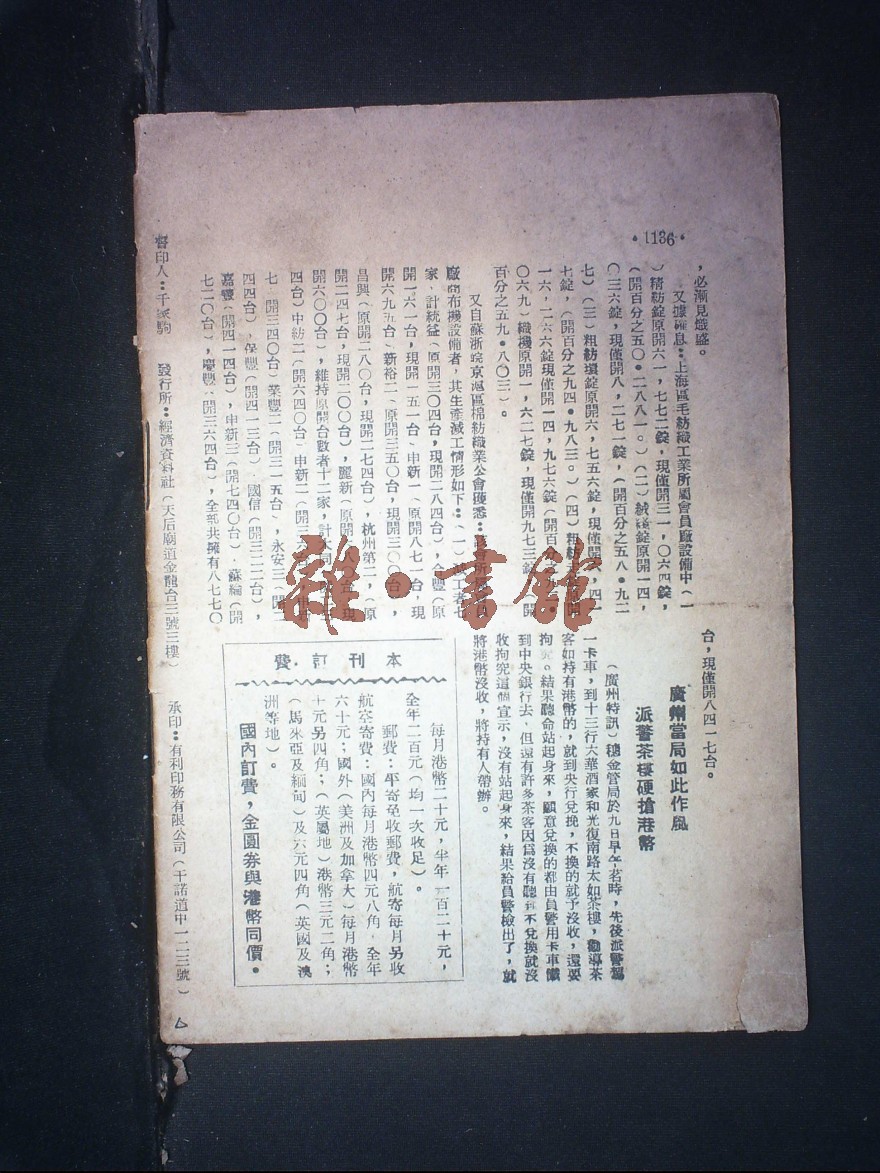 ·1136·
，必漸見熾盛。
又據確息：上海區毛紡織工業所屬會員廠設備中（一
）精紡錠原開六一，七七二錠，現僅開三一，〇六四錠，
（開百分之五〇·二八八一。）（二）絨綫錠原開一四，
〇三六錠，現僅開八，二七一錠，（開百分之五八·九二
七）（三）粗紡環錠原開六，七五六錠，現僅開六，四
七錠，（開百分之九四·九八三。）（四）粗紡
一六，二六六錠現僅開一四，九七六錠（開百分之九
〇六九）織機原開一，六二七錠，現僅開九七三錠（開
百分之五九·八〇三）。
又自蘇浙皖京滬區棉紡織業公會獲悉：該會所屬會員
廠商布機設備者，其生產減工情形如下：（一）減工者七
家，計統益（原開三〇四台，現開二八四台），合豐（原
開一六一台，現開一五一台），申新一（原開八七一台，現
開六九五台），新裕二（原開三五〇台，現開三〇〇台），
昌興（原開二八〇台，現開二七四台），杭州第二，（原
開二四七台，現開二〇〇台），麗新（原開
開六〇〇台），維持原開台數者十二家，計大同
四台）中紡二（開六四〇台）申新二（開三六
七，開三四〇台）業豐二（開三一五台），永安三（開二
四四台），保豐（開四一三台）國信（開三二二台），
嘉豐（開四一四台），申新三（開七四〇台），蘇綸（開
七二〇台），慶豐（開三六四台），全部共擁有八七七〇
台，現僅開八四一七台。
廣州當局如此作風
派警茶樓硬搶港幣
（廣州特訊）穗金管局於九日早午茗時，先後派警驅
一卡車，到十三行大華酒家和光復南路太如茶樓，勸導茶
客如持有港幣的，就到央行兌換，不換的就予沒收，還要
拘究。結果聽命站起身來，願意兌換的都由員警用卡車載
到中央銀行去，但還有許多茶客因爲沒有聽着不兌換就沒
收拘究這個宣示，沒有站起身來，結果給員警檢出了，就
將港幣沒收，將持有人帶辦。
本刊訂費
每月港幣二十元，半年一百二十元，
全年二百元（均一次收足）。
郵費：平寄免收郵費，航寄每月另收
航空寄費：國內每月港幣四元八角，全年
六十元；國外（美洲及加拿大）每月港幣
十元另四角；（英屬地）港幣三元二角；
（馬來亞及緬甸）及六元四角（英國及澳
洲等地）。
國內訂費，金圓券與港幣同價。
督印人：千家駒　發行所：經濟資料社（天后廟道金龍台三號三樓）　承印：有利印務有限公司（干諾道中一二三號）
雜·書館